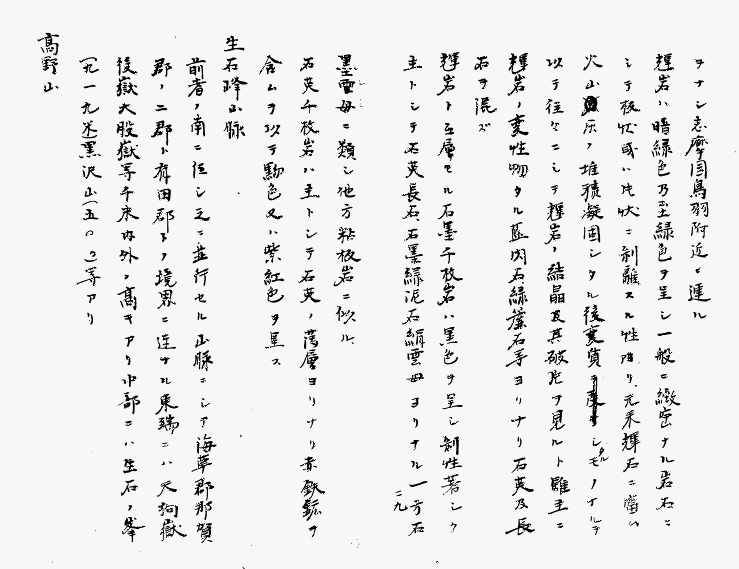 ヲナシ志摩国鳥羽附近ニ連ル
輝岩ハ暗緑色乃至緑色ヲ呈シ一般ニ緻密ナル岩石ニ
シテ板状或ハ片状ニ剥離スル性アリ元来輝石ニ富ム
火山灰ノ堆積凝固シタル後変質シタルモノナルテ
以テ往々ニシテ輝岩ノ結晶及其破片ヲ見ルト雖主ニ
輝岩ノ変性物タル藍閃石緑簾石等ヨリナリ石英及長
石ヲ混ズ
輝岩ト互層セル石墨千枚岩ハ黒色ヲ呈シ剥性著シク
主トシテ石英長石石墨緑泥石絹雲母ヨリナル一方石
二九
墨雲母ニ類シ他方粘板岩ニ似ル
石英千枚岩ハ主トシテ石英ノ薄層ヨリナリ赤鉄鉱ヲ
含ムヲ以テ黝色又ハ紫紅色ヲ呈ス
生石峰山脈
前者ノ南ニ位シ之ニ並行セル山脈ニシテ海草郡那賀
郡ノ二郡ト有田郡トノ境界ニ連ナル東端ニハ天狗嶽
後嶽大股嶽等千米内外ノ高キアリ中部ニハ生石ノ峯
(九一九米)黒沢山(五〇二等アリ
高野山